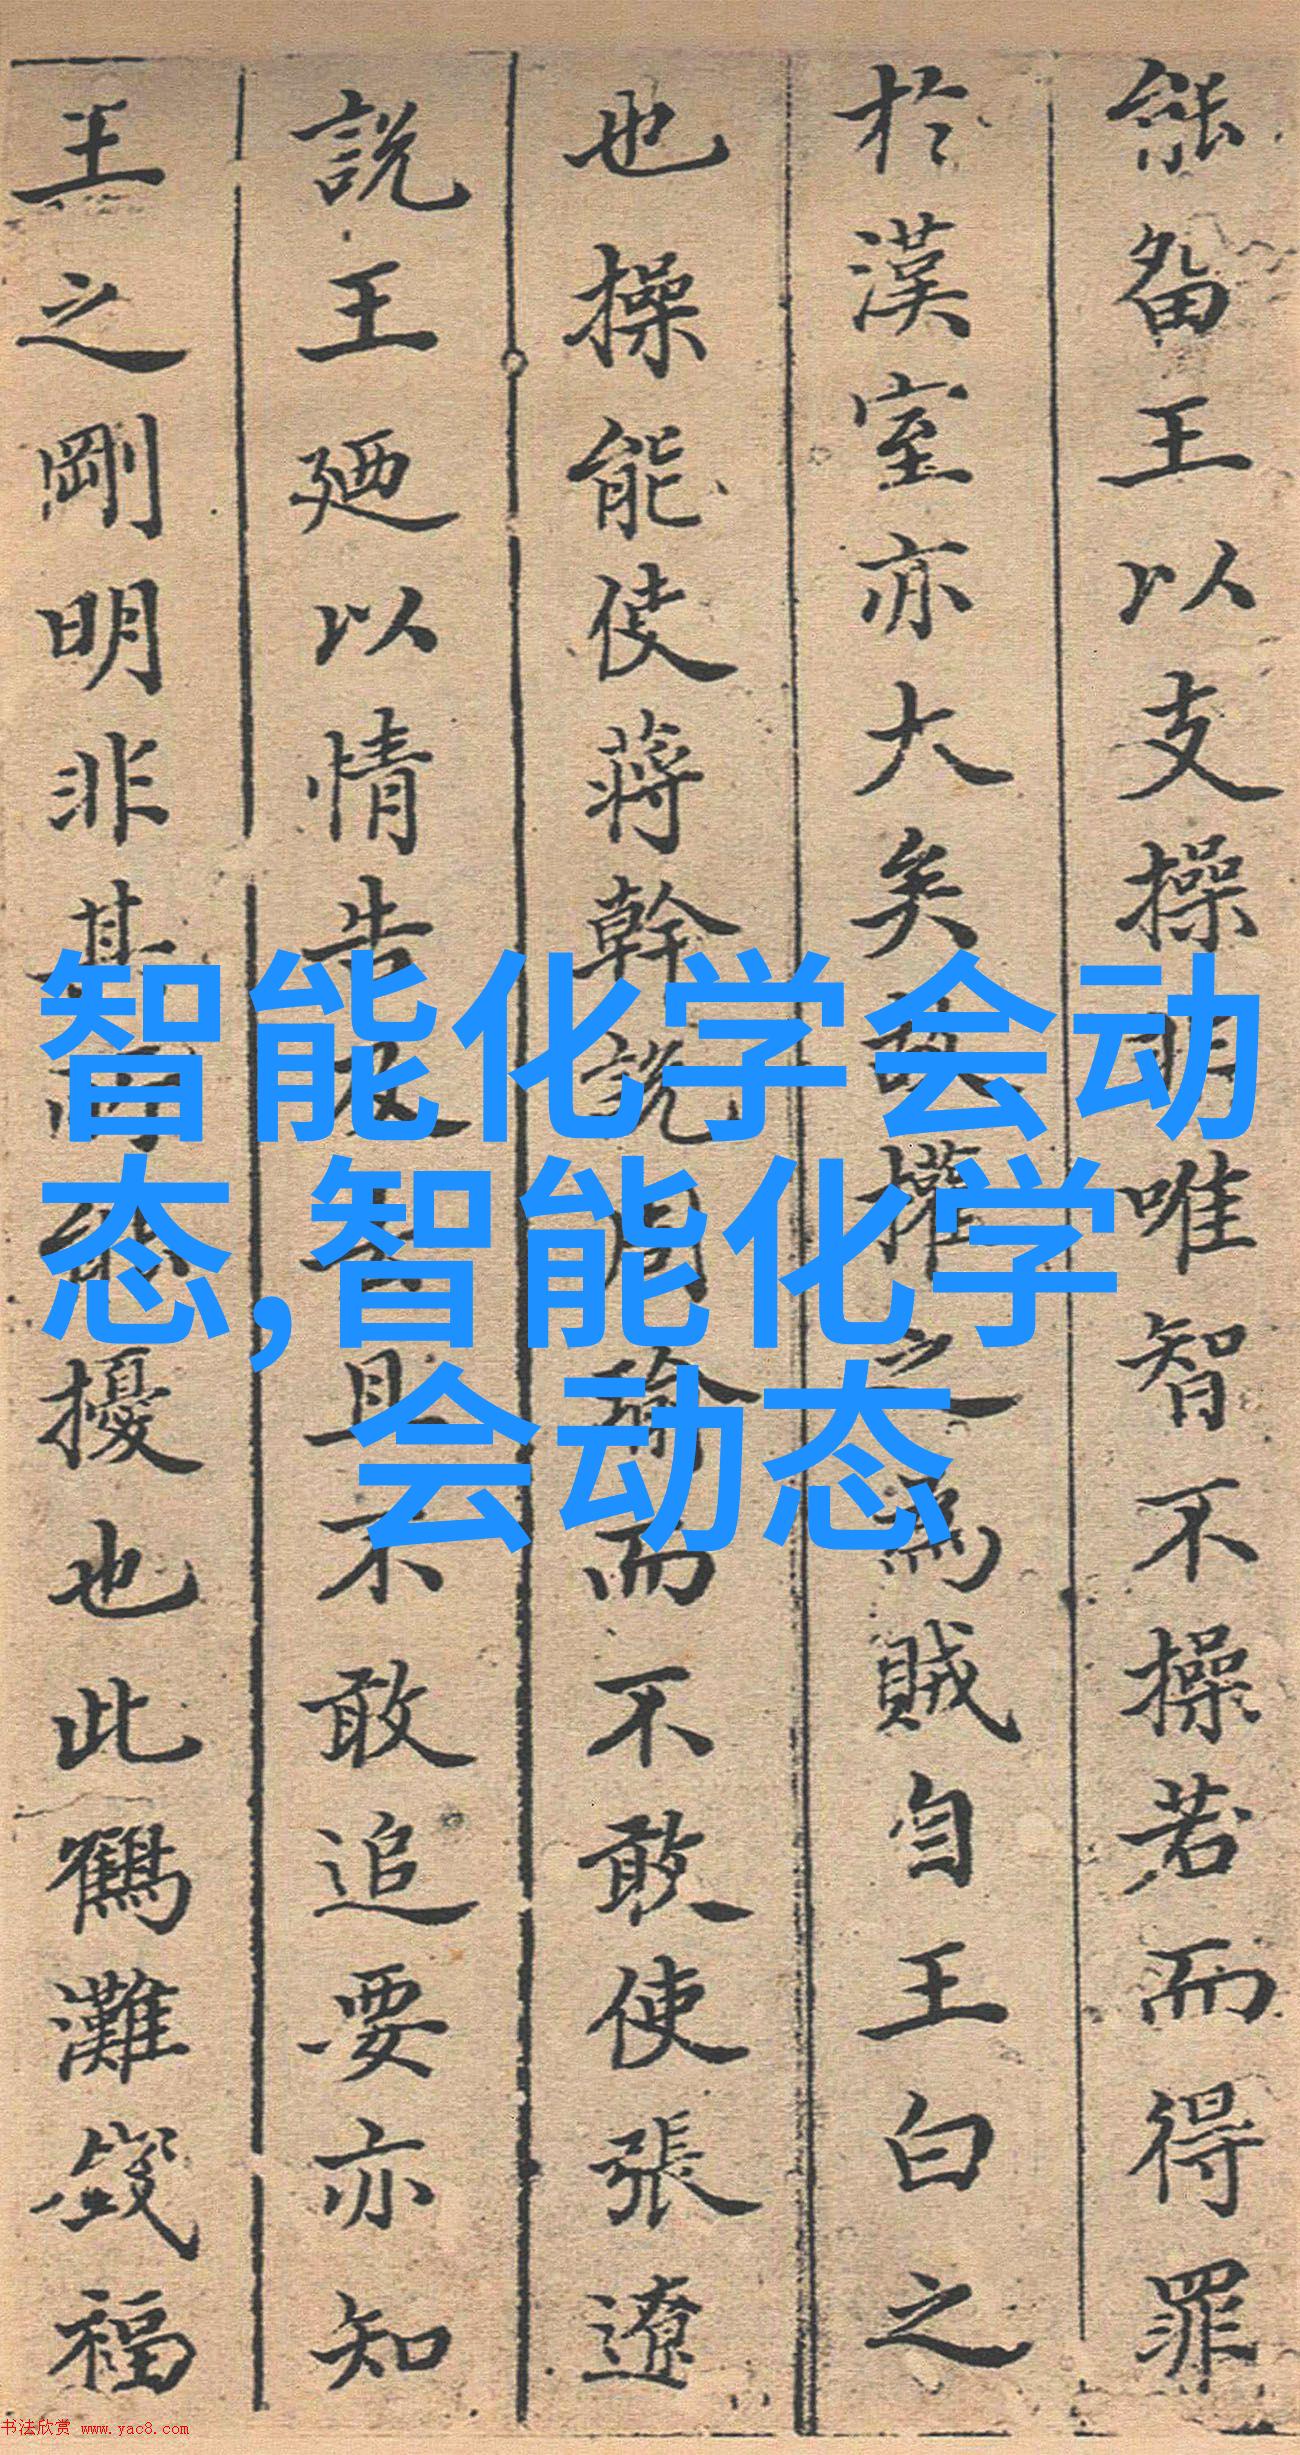 能留王以支操明唯智不操若而得罪
於漢室亦大矣故權之為賊自王白之
也操能使蔣幹說周瑜而不敢使張遼
說王王廼以情告及不敢追要亦知
王之剛明非其所能擾也此鶴灘筬福
智能化学会动
态,智能化学
会动态
书法欣赏 www.yac8.com